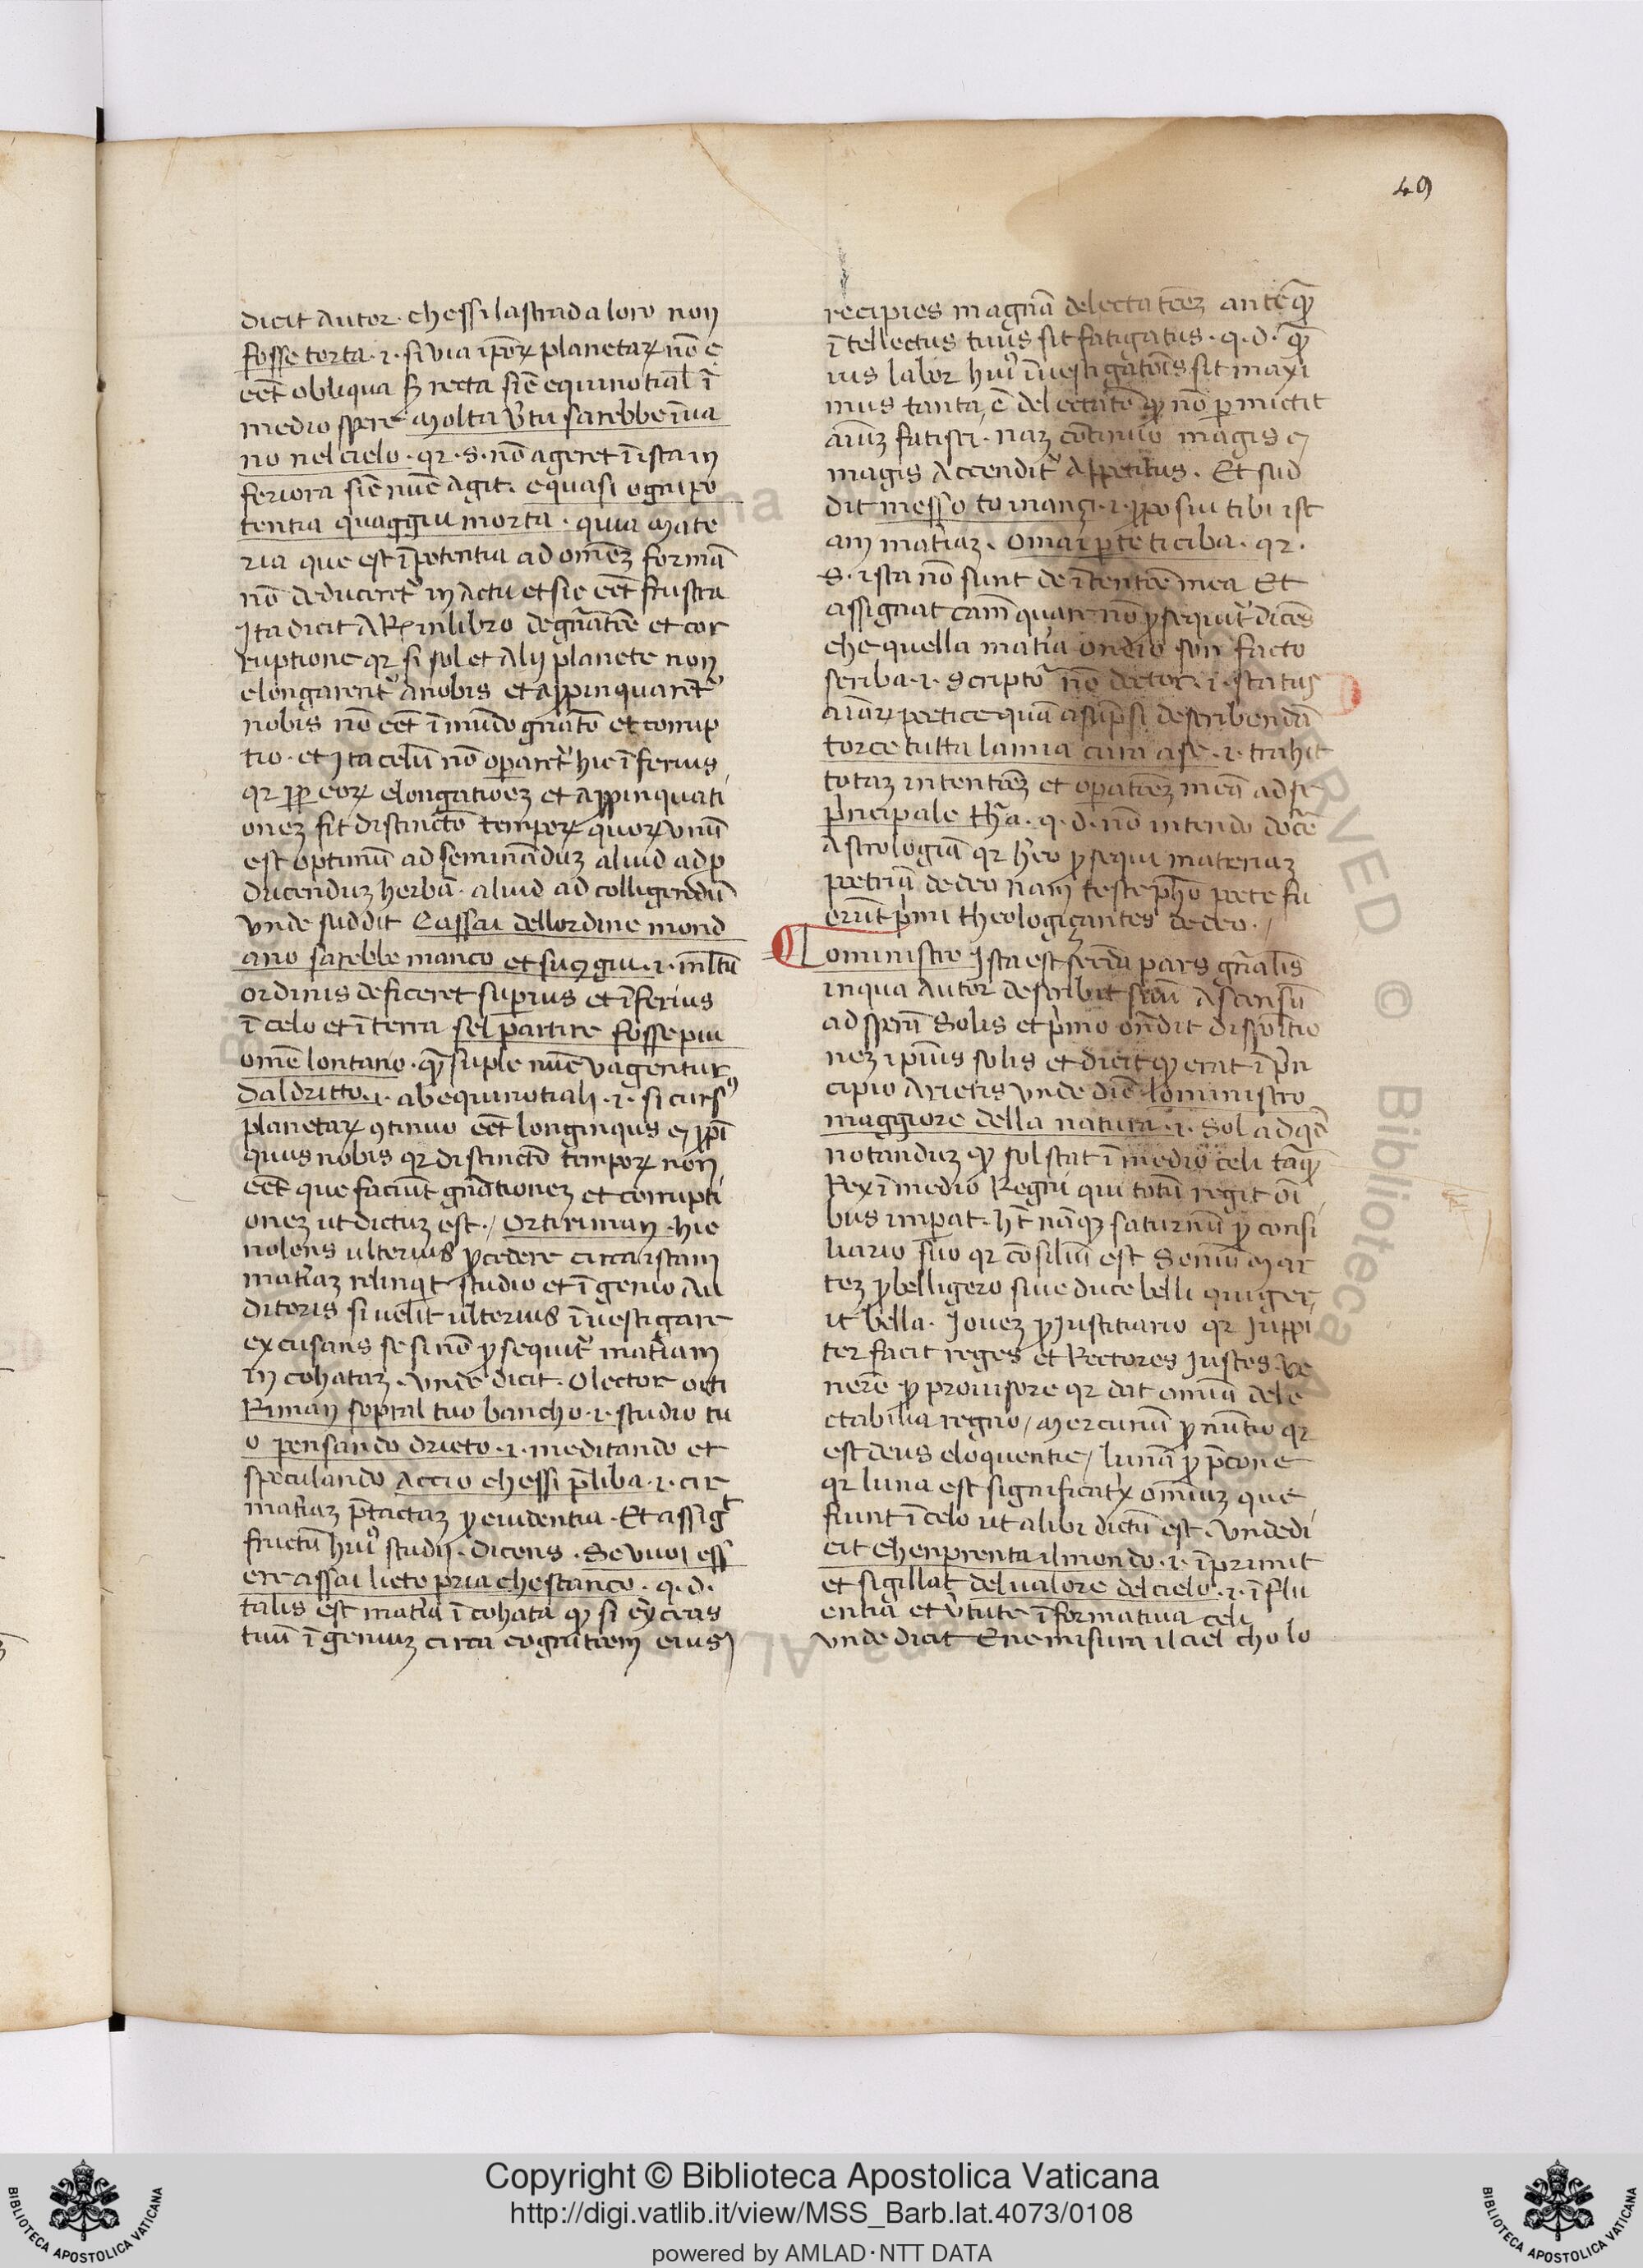 49
dicit Autor · che ssi la strada loro non
fosse torta · i · si via ipōrꝝ planetarꝝ nō e
eēt obliqua sꝫ recta sic̄ equinotial' ī
medio spere Molta v̄tu sarebbe īua
no nel cielo · qr · s · nō ageret ī ista in
feriora sic̄ nūc agit · e quasi ogni po
tentia quaggiu morta · quia mate
ria que est ī potentia ad omēꝫ formā
nō deduceret᷑ in actu et sic eēt frustra
Ita dicit ARꝫ in libro de gn̄atōne et cor
ruptione qr si sol et alij planete non
elongarent᷑ a nobis et appinquarēt᷑
nobis nō eēt ī mūdo gn̄atō et corrup
tio · et Ita celū nō oparēt᷑ hic īferius
qr ꝓp eorꝝ elongationeꝫ et appinquati
oneꝫ fit distinctō temporꝝ quorꝝ vnū
est optimū ad seminādūꝫ aliud ad ꝓ
ducenduꝫ herbā · aliud ad colligendū
vnde suddit E assai dell ordine mond
ano sarebbe manco et su ꝫ giu · i · ml̄tū
ordinis deficeret superius et īferius
ī celo et ī terra sel partire fosse piu
o mē lontano · qȝ sup̄le nūc vagentur
dal dritto · i · ab equinotiali · i · si cursꝰ
planetarꝝ ꝯtinuo eēt longinqus ⁊ ꝓpī
quus nobis qr distinctō temporꝝ non
eēt que faciūt gn̄ationeꝫ et corrupti
oneꝫ ut dictuꝫ est · / Or ti riman · hic
nolens ulterius ꝓcedere circa istam
mat̄iaꝫ relinqt studio et īgenio Au
ditoris si uelit ulterius īvestigare
excusans se si nō ꝓsequit᷑ mat̄iam
in cohataꝫ · vnde dicit · O lector or ti
Riman sopral tuo bancho · i · studio tu
o pensando drieto · i · meditando et
speculando Accio che ssi p̄liba · i · cir
mat̄iaꝫ p̄tactaꝫ ꝓ euidentia · Et assigᵗ
fructū hiuꝰ studij · dicens · Se vuoi ess
ere assai lieto pria che stanco · q · d ·
talis est mat̄ia īcohata qȝ si exc̄eas
tuū īgeniuꝫ circa cognitōem eius
recipies magnā delectatōeꝫ anteqȝ
ītellectus tuus sit fatigatus · q · d · qȝ
uis labor hiuꝰ īuestigatōis sit maxi
mus tanta ē delectatō qȝ nō p̱mictit
aiūꝫ fatisci · naꝫ cōtinuo magis ⁊
magis accendit᷑ Appetitus · Et sud
dit messo to inanzi · i · ꝓposui tibi ist
am mat̄iaꝫ · omai p̱ te ti ciba · qr ·
s · ista nō sunt de ītentōe mea Et
assignat cām quare nō ꝓsequit᷑ dicēs
che quella mat̄ia ondio son facto
scriba · i · scriptor nō dictor · i · status
aiarꝝ poetice quā asūpsi describendā
torce tutta la mia cura a se · i · trahit
totaꝫ intentōeꝫ et operatōeꝫ meā ad se
p̄ncipale th̄a · q · d · nō intendo docē
Astrologiā qr h̄eo ꝓsequi materiaꝫ
poetriā de deo nam teste ph̄o poete fu
erūt p̄mi theologiçantes de deo · /
Lo ministro Ista est sc̄da pars gn̄alis
in qua Autor describit suū ascensū
ad sperā Solis et p̄mo on̄dit dispōitio
neꝫ ipīus solis et dicit qȝ erat ī p̄n
cipio Arietis vnde dic̄ · lo ministro
maggiore della natura · i · Sol ad qd̄
notanduꝫ qȝ sol stat ī medio celi tāqȝ
Rex ī medio Regni qui totū regit oī
bus imperat · h̄t nāqȝ saturnū ꝓ consi
liario suo qr cōsiliū est Senuꝫ Mar
teꝫ ꝓ belligero siue duce belli qui ger
it bella · Joueꝫ ꝓ Justitiario qr Juppi
ter facit reges et Rectores Justos Ve
nerē ꝓ prouisore qr dat omīa dele
ctabilia regno / Mercuriū ꝓ nūtio qr
est deus eloquentie / lunā ꝓ p̄cone
qr luna est significat̄x omīuꝫ que
fiunt ī celo ut alibi dictū est · Vnde di
cit che nprenta il mondo · i · īprimit
et sigillat del ualore del cielo · i · īflu
entia et v̄tute īformatiua celi
vnde dicit E ne misura il ciel cho lo
Copyright © Biblioteca Apostolica Vaticana
http://digi.vatlib.it/view/MSS_Barb.lat.4073/0108
powered by AMLAD·NTT DATA
BIBLIOTECA APOSTOLICA VATICANA
BIBLIOTECA APOSTOLICA VATICANA